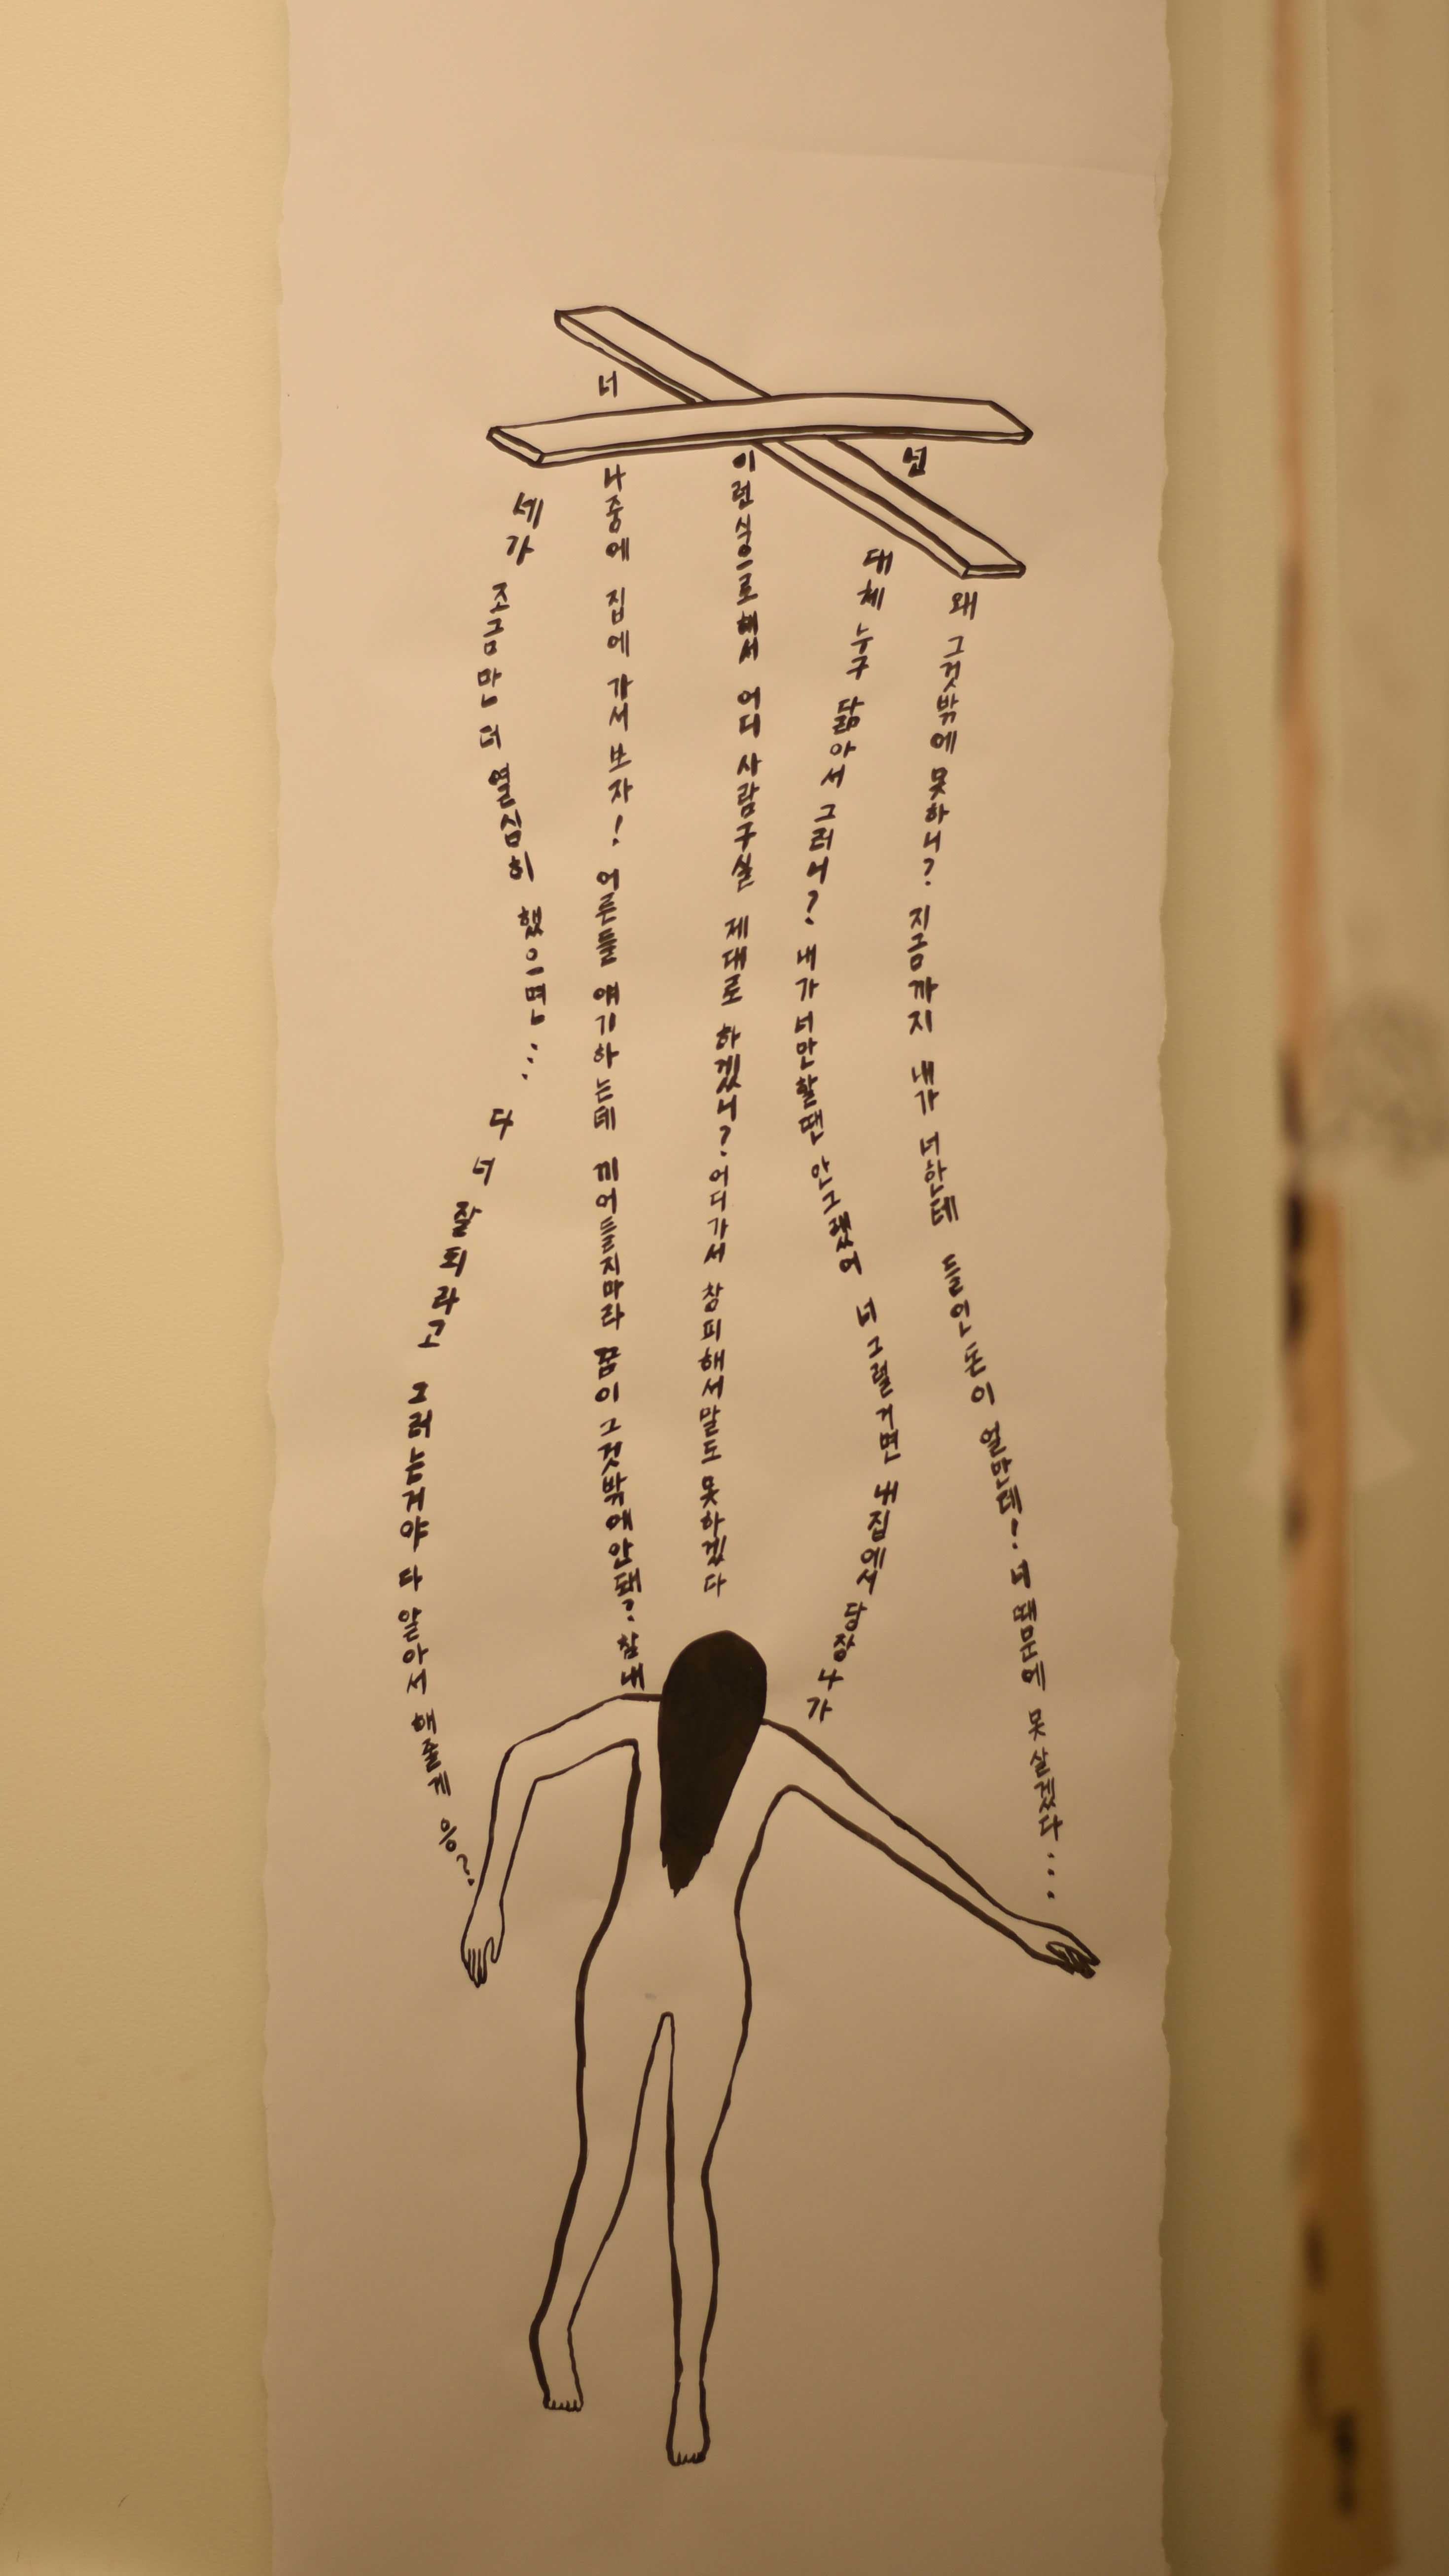 세가 조금만 더 열심히 했으면... 다 너 잘되라고 그러는거야 다 알아서 해줄게 응?
너 나중에 집에 가서 보자! 어른들 얘기하는데 끼어들지마라 꿈이 그것밖에안돼? 참내
이런식으로해서 어디 사람구실 제대로 하겠니? 어디가서 창피해서말도 못하겠다
대체 누구 닮아서 그러니? 내가 너만할땐 안그랬어 너 그럴거면 내집에서 당장나가
넌 왜 그것밖에 못하니? 지금까지 내가 너한테 들인돈이 얼만데! 너 때문에 못살겠다...